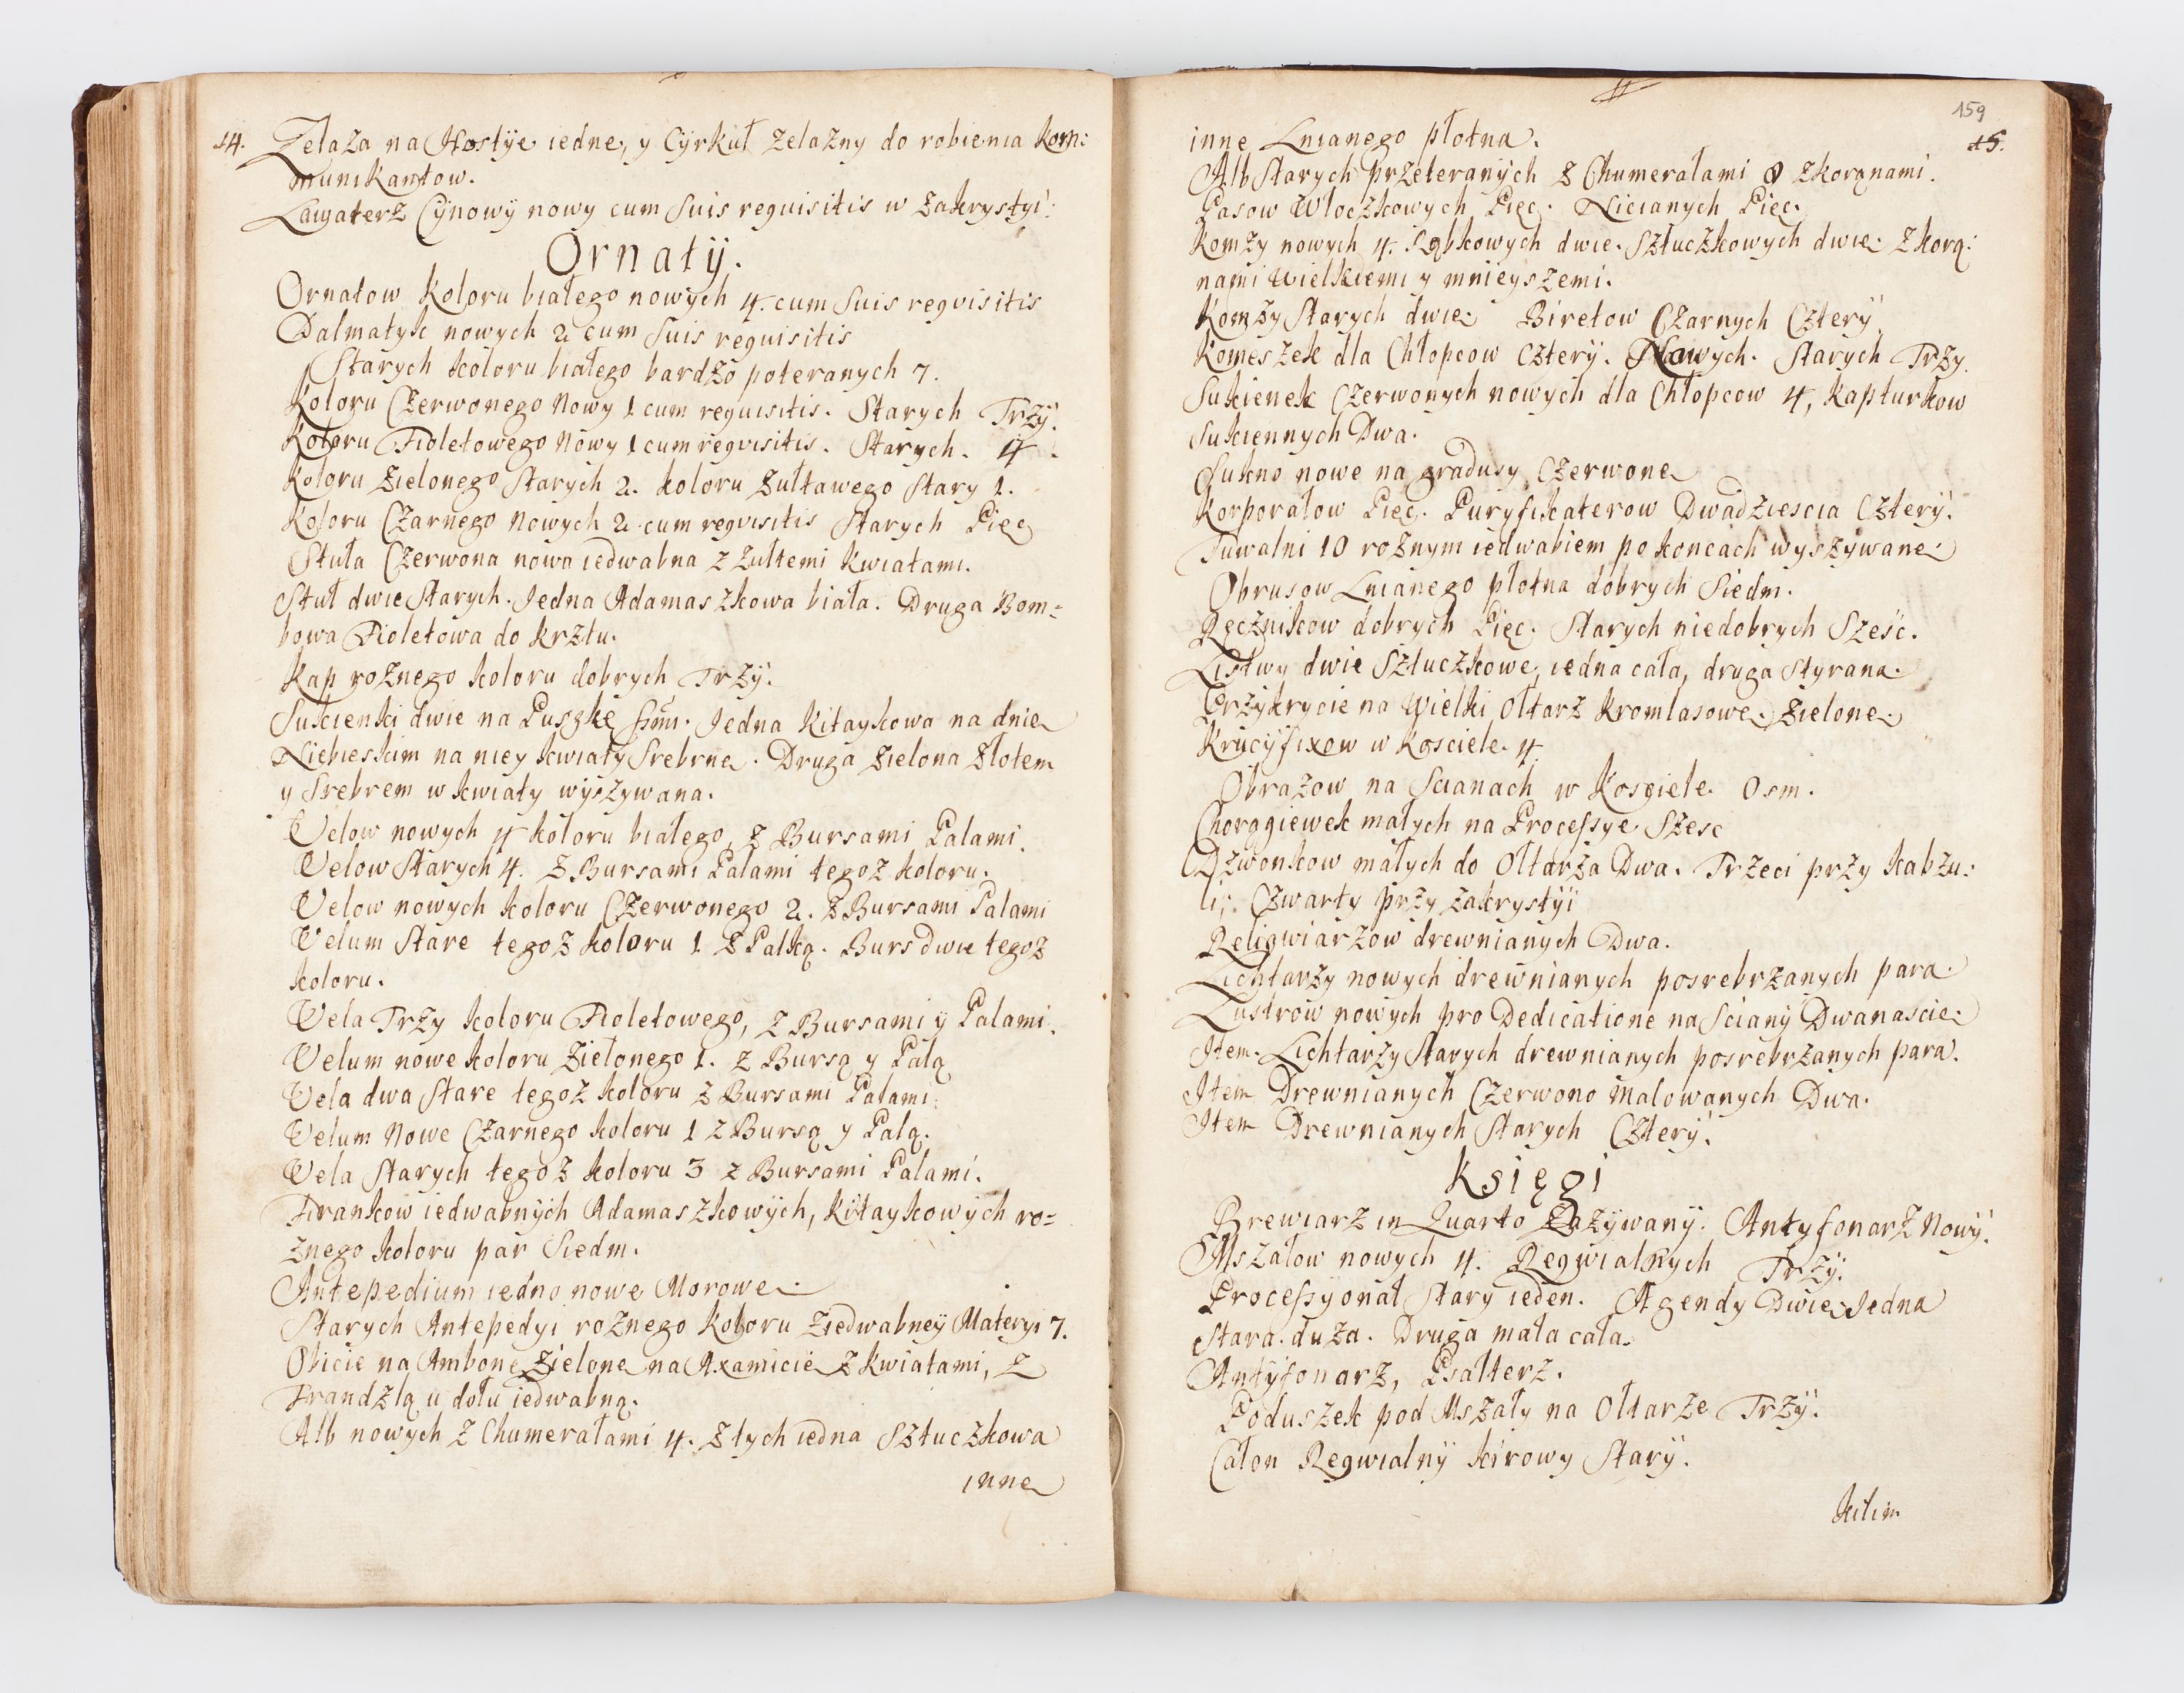 14.
Zelaza na Hostÿe iedne, y Cÿrkuł zelazny do robienia kom:
munikantow.
Lawaterz Cÿnowÿ nowy cum Suis requisitis w Zakrystyi.
Ornatÿ.
Ornatow koloru białego nowÿch 4. cum Suis reqvisitis
Dalmatyk nowych 2 cum Suis requisitis
Starych koloru białego bardzo poteranych 7.
Koloru Czerwonego Nowy 1 cum requisitis. Starych Trzÿ.
Koloru Fioletowego Nowy 1 cum reqvisitis. Starych. 4.
Koloru Zielonego Starych 2. koloru Zułtawego Stary 1.
Koloru Czarnego Nowych 2 cum reqvisitis Starych Pięc
Stuła Czerwona nowa iedwabna z zułtemi kwiatami.
Stuł dwie Starych. Jedna Adamaszkowa biała. Druga Bom=
bowa Fioletowa do krztu.
Kap roznego koloru dobrych Trzÿ.
Sukienki dwie na Puszkę Jedna Kitaykowa na dnie
Niebieskim na niey kwiaty Srebrne. Druga Zielona Złotem
y Srebrem w kwiaty wÿszywana.
Velow nowych 4 koloru białego, z Bursami Palami.
Velow Starych 4. z Bursami Palami tegoz koloru.
Velow nowych koloru Czerwonego 2. z Bursami Palami
Velum Stare tegoz koloru 1 z Palką. Burs dwie tegoz
koloru.
Vela Trzy koloru Fioletowego, z Bursami ÿ Palami.
Velum nowe koloru Zielonego 1. z Bursą y Palą
Vela dwa Stare tegoz koloru z Bursami Palami.
Velum Nowe Czarnego koloru 1 z Bursą y Palą.
Vela Starych tegoz koloru 3 z Bursami Palami.
Firankow iedwabnÿch Adamaszkowÿch, Kitaykowÿch ro=
znego koloru par Siedm.
Antepedium iedno nowe Morowe.
Starych Antepedyi roznego koloru ziedwabneÿ Materyi 7.
Obicie na Ambonę Zielone na Axamicie z kwiatami, z
Frandzlą u dołu iedwabną.
Alb nowych z Chumerałami 4. z tych iedna Sztuczkowa
inne
159
15.
inne Lnianego płotna.
Alb Starych przeteranÿch z Chumerałami 8 zkorąnami.
Pasow Włoczkowych Pięc. Nicianych Pięc.
Komzy nowych 4. Rąbkowych dwie. Sztuczkowych dwie zkorą:
nami Wielkiemi y mnieyszemi.
Komzy Starych dwie Biretow Czarnych Cztery
Komeszek dla Chłopcow Czterÿ. Nowych. Starych Trzy.
Sukienek Czerwonych nowych dla Chłopcow 4, kapturkow
Sukiennych Dwa.
Sukno nowe na gradusy Czerwone
Korporałow Pięc. Puryfikaterow Dwadziescia Czterÿ.
Tuwalni 10 roznym iedwabiem po koncach wyszywane
Obrusow Lnianego płotna dobrych Siedm.
Ręcznikow dobrych Pięc. Starych niedobrych Szesc.
Listwy dwie Sztuczkowe, iedna cała, druga Styrana.
Przykrycie na Wielki Ołtarz kromlasowe. Zielone.
Krucÿfixow w Kosciele. 4.
Obrazow na Scianach w Kosciele. Osm.
Chorągiewek małych na Processye Szesc
Dzwonkow małych do Ołtarza Dwa. Trzeci przy kabzu:
li;. Czwarty przy zakrystÿi
Reliqwiarzow drewnianych Dwa.
Lichtarzy nowych drewnianych posrebrzanych para.
Lustrow nowych pro Dedicatione na Scianÿ Dwanascie.
Item. Lichtarzy Starych drewnianych posrebrzanych para.
Item Drewnianych Czerwono malowanych Dwa.
Item Drewnianych Starych Czterÿ.
Księgi
Brewiarz in Quarto Zazÿwanÿ. Antyfonarz Nowÿ.
Mszałow nowych 4. Reqwialnych Trzÿ.
Processyonał Stary ieden. Agendy Dwie Jedna
Stara. duza. Druga mała cała.
Antÿfonarz, Psałterz.
Poduszek pod Mszały na Ołtarze Trzÿ.
Całon Reqwialnÿ kirowy Starÿ.
kilim